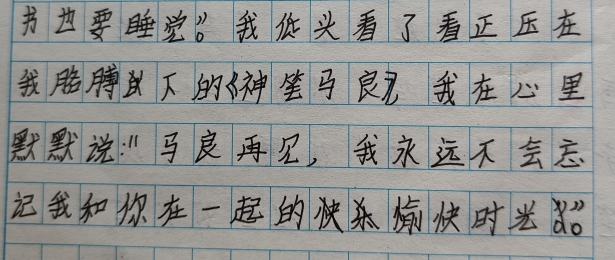 书也要睡觉。”我低头看了看正压在
我胳膊底下的《神笔马良》，我在心里
默默说：“马良再见，我永远不会忘
记我和你在一起的快乐愉快时光。”